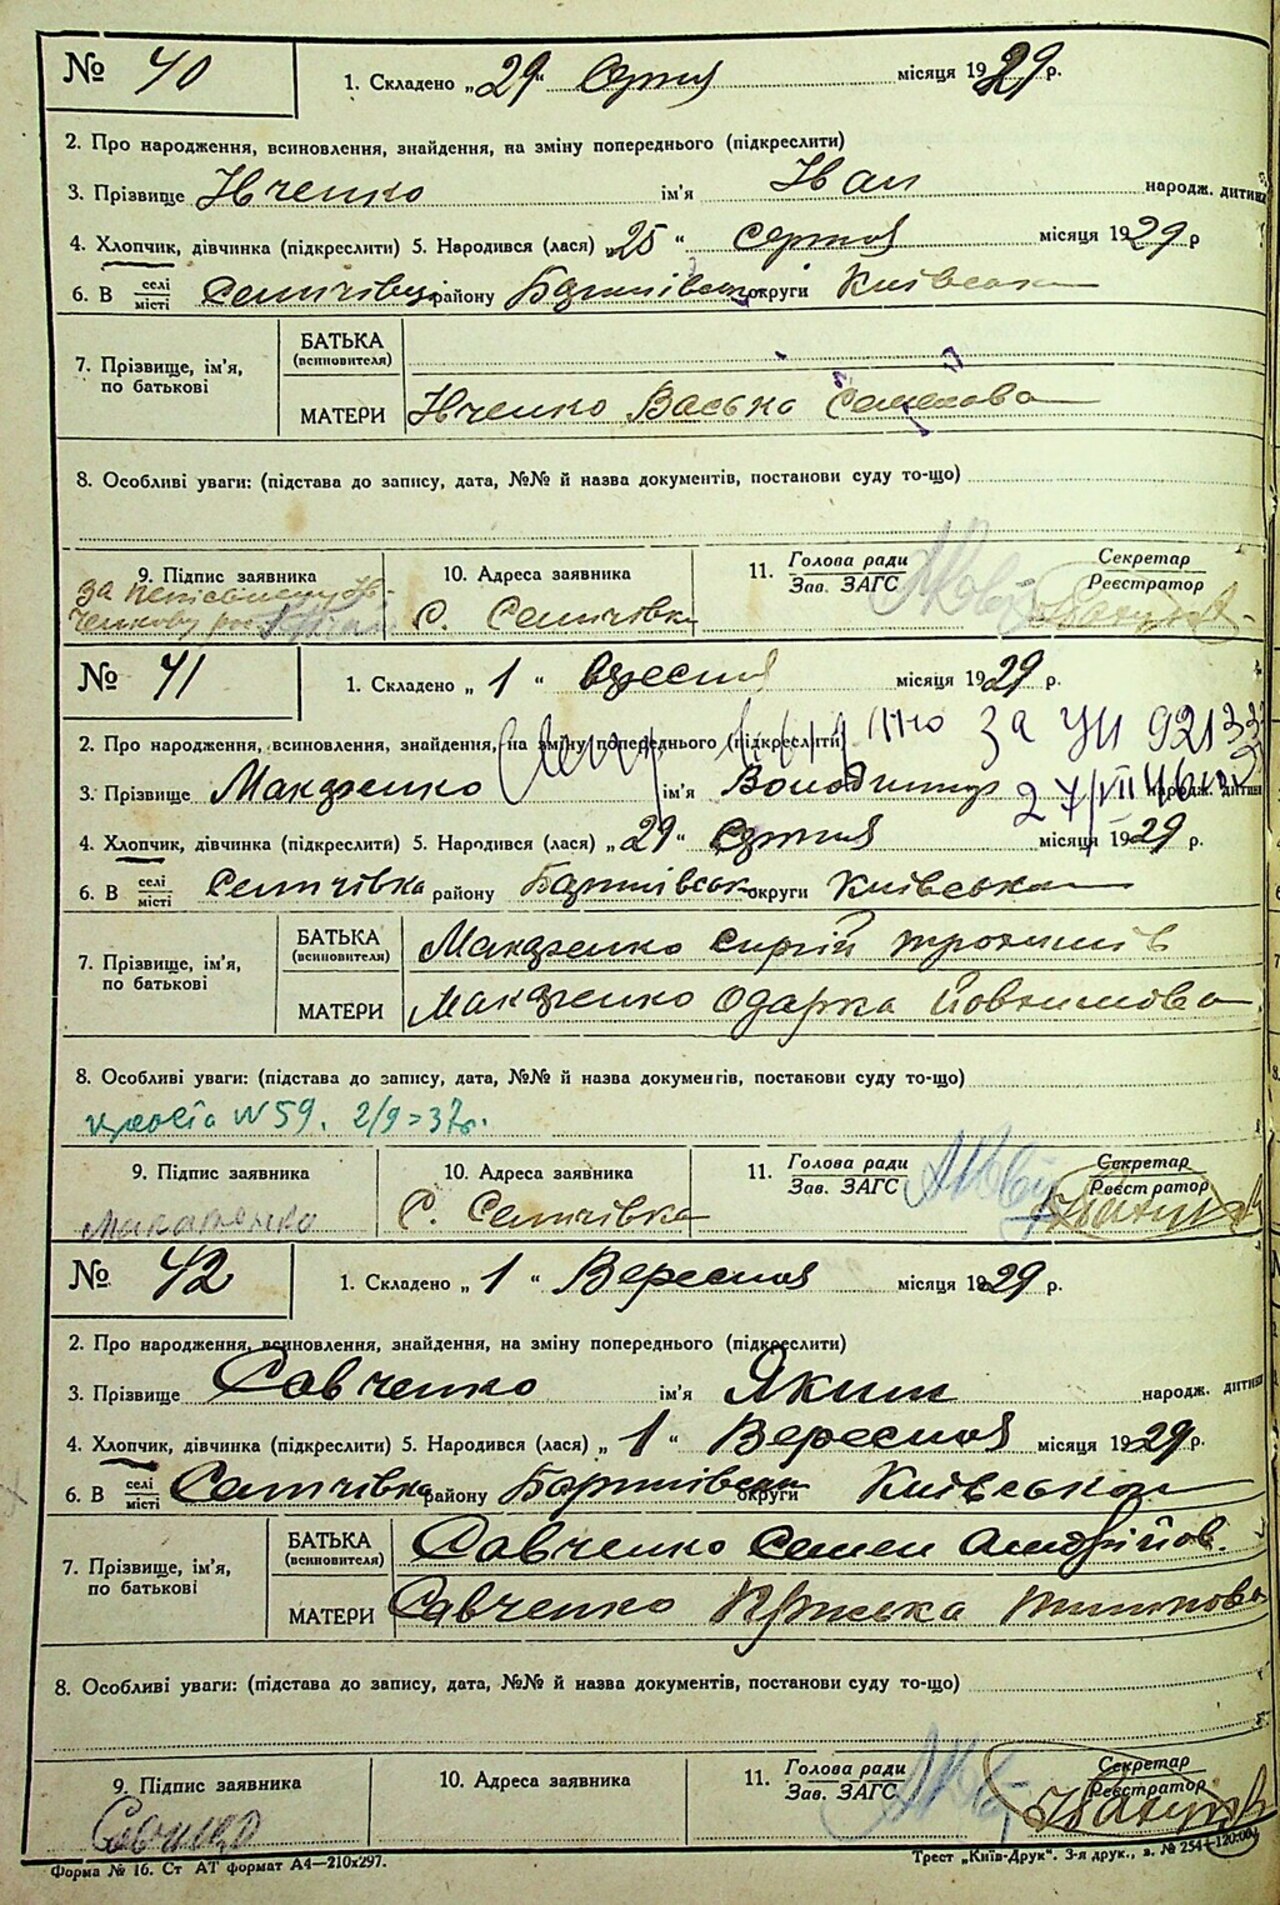 № 40 1. Склaдено „29“ Серпня місяця 1929 р.
2. Про народження, всиновлення, знайдення, на зміну попереднього (підкреслити)
3. Прізвище Івченко ім'я Іван народж. дитини
4. Хлопчик, дівчинка (підкреслити) 5. Народився (лася) „25“ серпня місяця 1929 р
6. В селі місті Сеничівці району Баришівськ округи Київська
7. Прізвище, ім'я, по батькові
БАТЬКА (всиновителя)
МАТЕРИ Івченко Васька Семенова
8. Особливі уваги: (підстава до запису, дата, №№ й назва документів, постанови суду то-що)
9. Підпис заявника 10. Адреса заявника 11. Голова ради Зав. ЗАГС Секретар Реєстратор
за неписьмену Ів-
ченкову рос С. Селичівка
№ 41 1. Складено „1“ вересня місяця 1929 р.
2. Про народження, всиновлення, знайдення, на зміну попереднього (підкреслити) за УЦ 921332
3. Прізвище Макаренко ім'я Володимир народж. дитини
27/VII
4. Хлопчик, дівчинка (підкреслити) 5. Народився (лася) „29“ Серпня місяця 1929 р.
6. В селі місті Селичівка району Баришівськ округи Київська
7. Прізвище, ім'я, по батькові
БАТЬКА (всиновителя) Макаренко Сергій Трохимів
МАТЕРИ Макаренко Одарка Йовхимова
8. Особливі уваги: (підстава до запису, дата, №№ й назва документів, постанови суду то-що)
N 59. 2/9=37г.
9. Підпис заявника 10. Адреса заявника 11. Голова ради Зав. ЗАГС Секретар Реєстратор
Макаренко С. Селичівка
№ 42 1. Складено „1“ Вересня місяця 1929 р.
2. Про народження, всиновлення, знайдення, на зміну попереднього (підкреслити)
3. Прізвище Савченко ім'я Яким народж. дитини
4. Хлопчик, дівчинка (підкреслити) 5. Народився (лася) „1“ Вересня місяця 1929 р.
6. В селі місті Селичівка району Баришівськ округи Київська
7. Прізвище, ім'я, по батькові
БАТЬКА (всиновителя) Савченко Семен Андрійов.
МАТЕРИ Савченко Пріська Тишкова
8. Особливі уваги: (підстава до запису, дата, №№ й назва документів, постанови суду то-що)
9. Підпис заявника 10. Адреса заявника 11. Голова ради Зав. ЗАГС Секретар Реєстратор
Форма № 16. Ст АТ формат А4—210х297. Трест „Київ-Друк“. 3-я друк., з. № 254—120:00